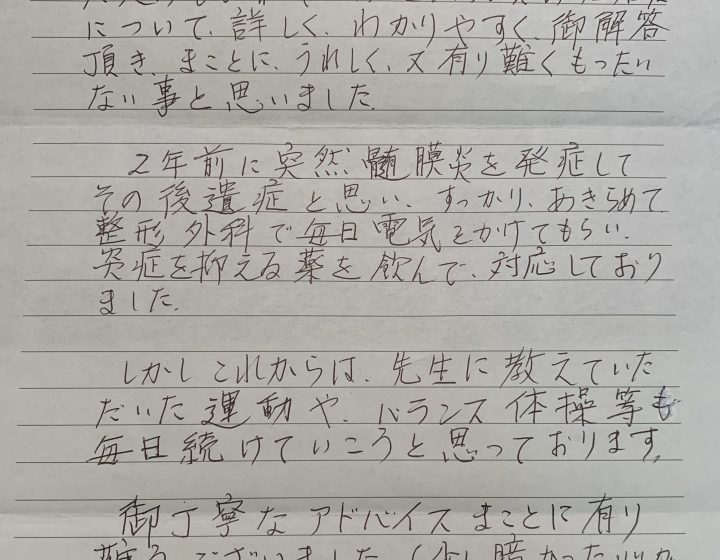 について、詳しく、わかりやすく、御解答
頂き、まことに、うれしく、又有り難くもったい
ない事と思いました。
2年前に突然髄膜炎を発症して
その後遺症と思い、すっかり、あきらめて、
整形外科で毎日電気をかけてもらい、
炎症を抑える薬を飲んで、対応しており
ました。
しかしこれからは、先生に教えていた
だいた運動や、バランス体操等も
毎日続けていこうと思っております。
御丁寧なアドバイスまことに有り
難うございました。